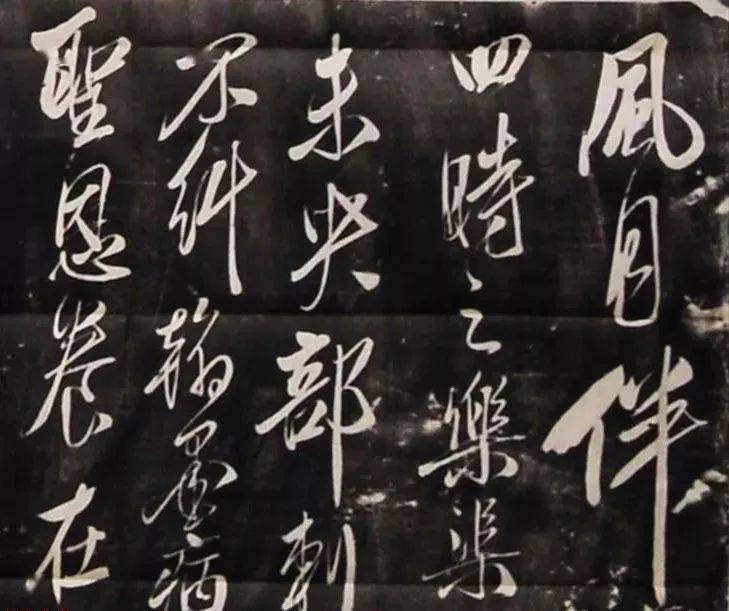 風自伴
四時之樂渠
未央部刺
不糾翰墨病
聖恩養在